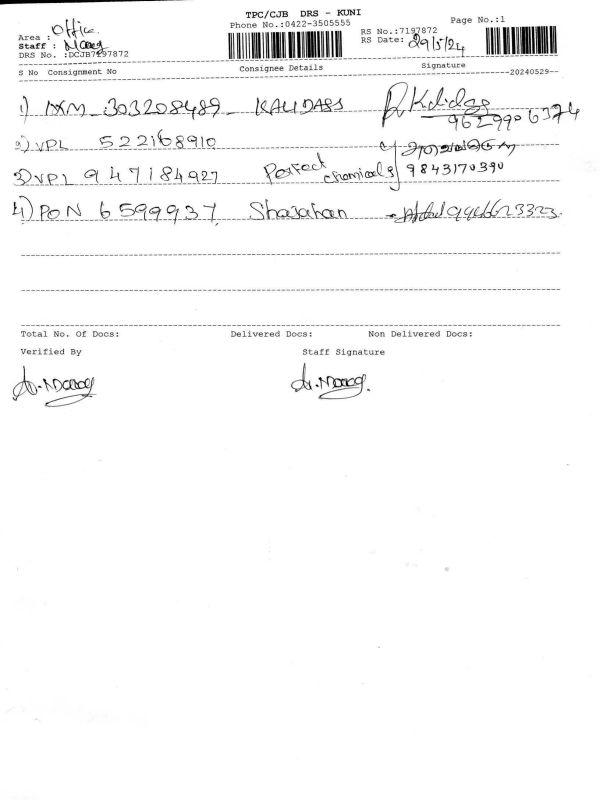 TPC/CJB DRS - KUNI
Phone No.:0422-3505555
Page No.:1
Area : Office.
RS No.:7197872
Staff :
RS Date: 29/5/24
DRS No. :DCJB7197872
S No Consignment No Consignee Details Signature
20240529
1) IXM - 303208489 - KALIDASS
9629906374
2) VPL 522168910
3) VPL 947184927 Perfect chemicals 9843170390
4) PON 6599937 Shajahan
Total No. Of Docs: Delivered Docs: Non Delivered Docs:
Verified By Staff Signature